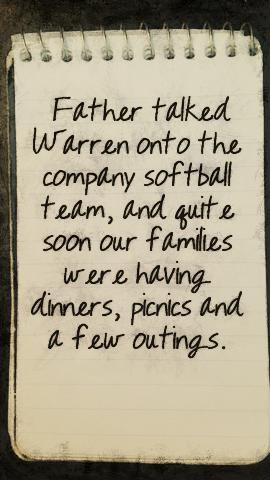 Father talked
Warren onto the
company softball
team, and quite
soon our families
were having
dinners, picnics and
a few outings.